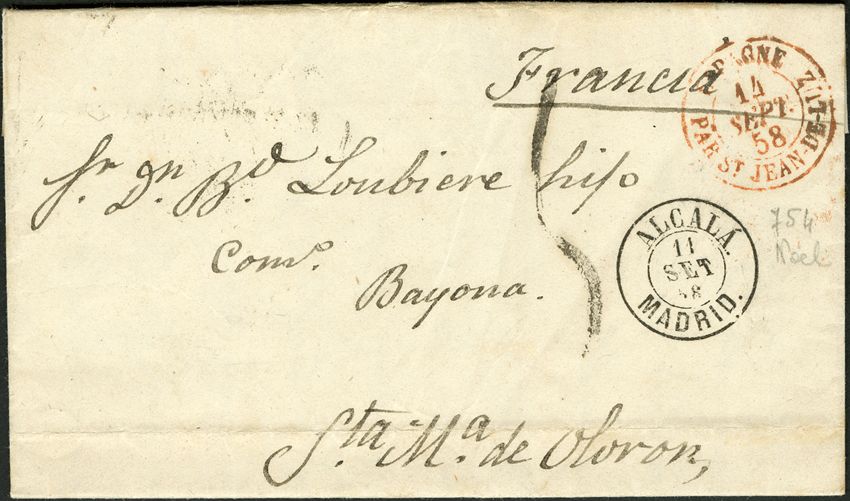 Francia
ESPAGNE
14
SEPT.
58
PAR ST JEAN-DE-LUZ
Sr. Dn. Bdo Loubiere hijo
754
Comº.
ALCALÁ.
11
SET
58
MADRID.
Bayona.
Sta Mª. de Oloron,